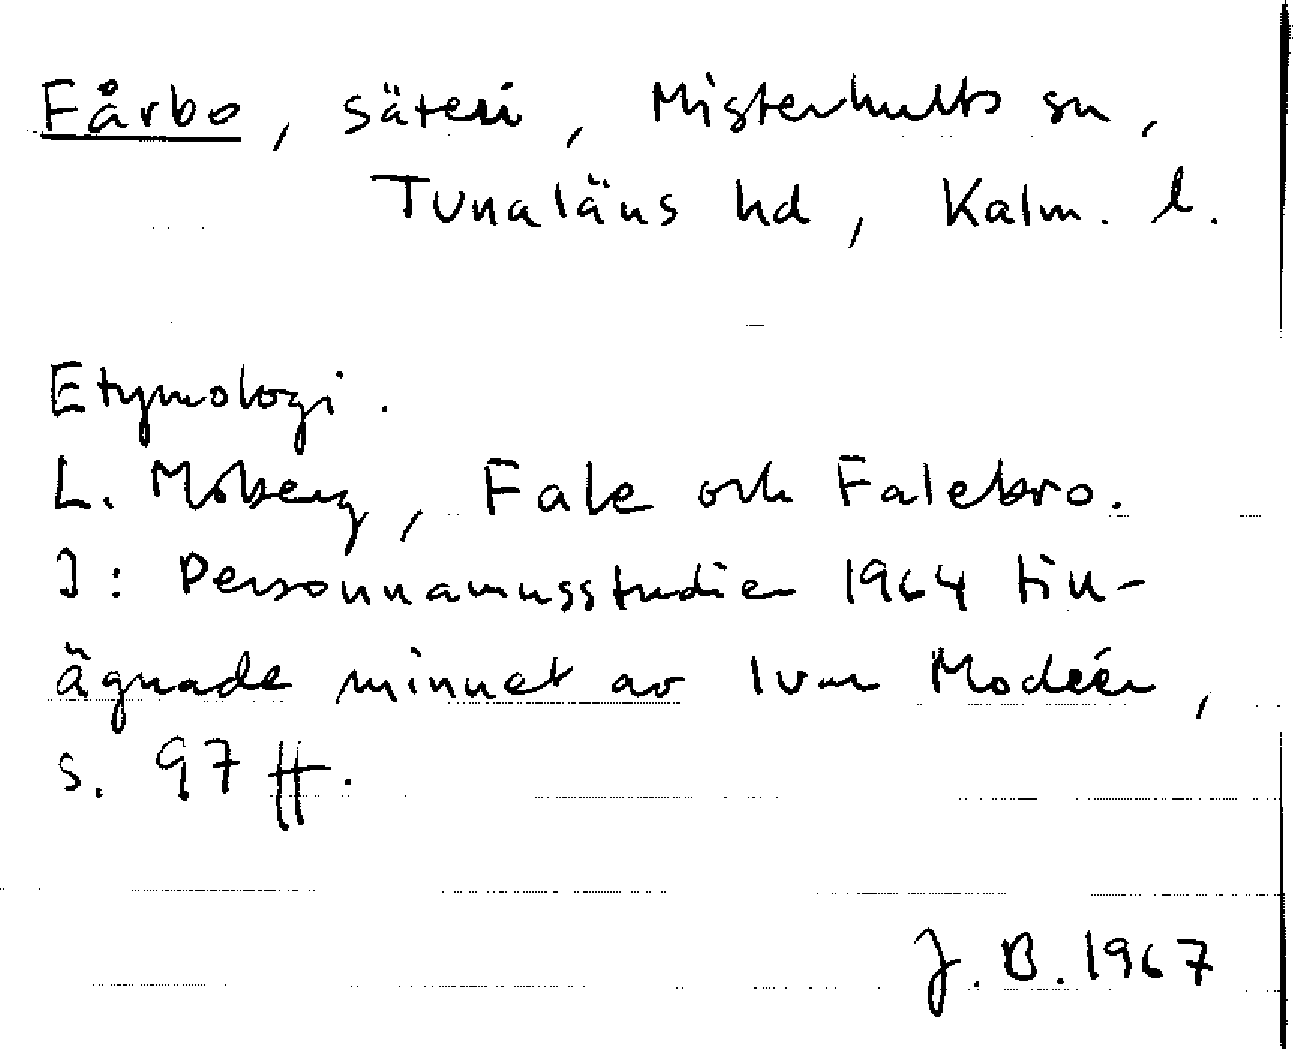 Fårbo, säteri, Misterhults sn,
Tunaläns hd, Kalm. l.
Etymologi.
L. Moberg, Fale och Falebro.
I: Personnamnsstudier 1964 till-
ägnade minnet av Ivar Modéer,
s. 97 ff.
J. B. 1967